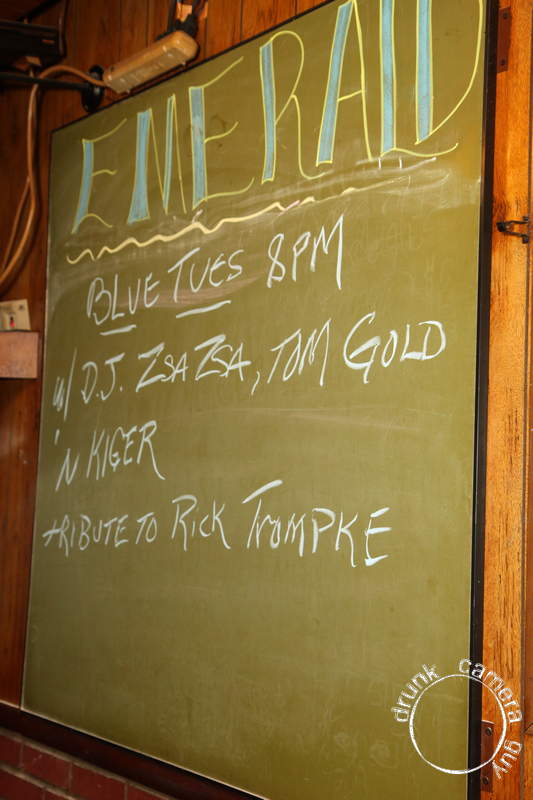 EMERALD
BLUE TUES 8PM
w/ D.J. ZSA ZSA, TOM GOLD
'N KIGER
TRIBUTE TO RICK TROMPKE
drunk camera guy